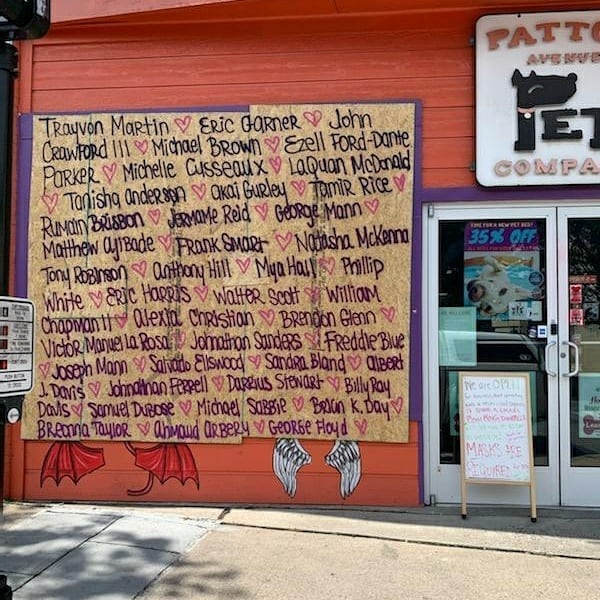 Trayvon Martin ♡ Eric Garner ♡ John
Crawford III ♡ Michael Brown ♡ Ezell Ford - Dante
Parker ♡ Michelle Cusseaux ♡ LaQuan McDonald
♡ Tanisha Anderson ♡ Akai Gurley ♡ Tamir Rice ♡
Rumain Brisbon ♡ Jermame Reid ♡ George Mann ♡
Matthew Ajibade ♡ Frank Smart ♡ Natasha McKenna
Tony Robinson ♡ Anthony Hill ♡ Mya Hall ♡ Phillip
White ♡ Eric Harris ♡ Walter Scott ♡ William
Chapman II ♡ Alexia Christian ♡ Brendon Glenn ♡
Victor Manuel La Rosa ♡ Johnathan Sanders ♡ Freddie Blue
♡ Joseph Mann ♡ Salvado Elswood ♡ Sandra Bland ♡ Albert
J. Davis ♡ Johnathan Ferrell ♡ Darrius Stewart ♡ Billy Ray
Davis ♡ Samuel Dubose ♡ Michael Sabbie ♡ Brian K. Day ♡
Breonna Taylor ♡ Ahmaud Arbery ♡ George Floyd ♡
PATTO
AVENUE
PET
COMPA
TIME FOR A NEW PET BED!
35% OFF
We are OPEN
MASKS ARE
REQUIRED